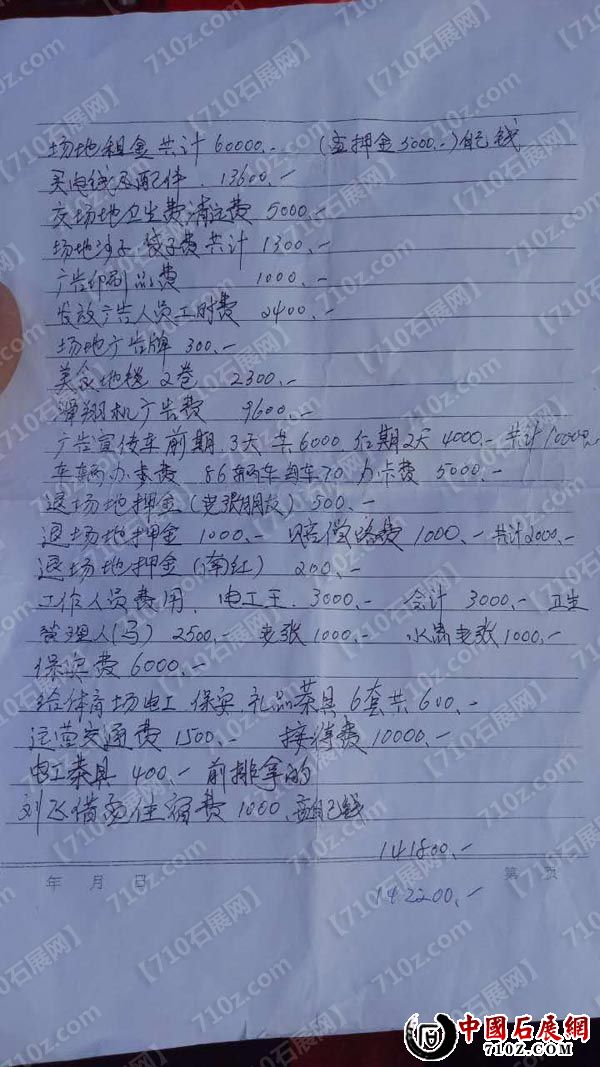 场地租金共计60000.- (含押金5000.-)
买电线及配件 13600.-
交场地卫生费清运费 5000.-
场地沙子 袋子费共计 1300.-
广告印刷品费 1000.-
发放广告人员工时费 2400.-
场地广告牌 300.-
地毯 2卷 2300.-
滑翔机广告费 9600.-
广告宣传车前期3天共6000 后期2天4000.- 共计10000.-
车辆办 费 86辆车 70 办卡费 5000.-
退场地押金(老张朋友) 500.-
退场地押金 1000.- 赔偿路费 1000.- 共计2000.-
退场地押金(南红) 200.-
工作人员费用. 电工王 3000.- 会计 3000.- 卫生
管理人(马) 2500.- 老张1000.- 水 老张1000.-
保安费 6000.-
给体育场电工 保安 礼品茶具 6套共600.-
运营交通费 1500.- 接待费 10000.-
电工茶具 400.- 前排拿的
刘飞借 住宿费 1000.
141800.-
年 月 日 第 页
142200.-
【710石展网】
710z.com
中國石展網
710Z.COM